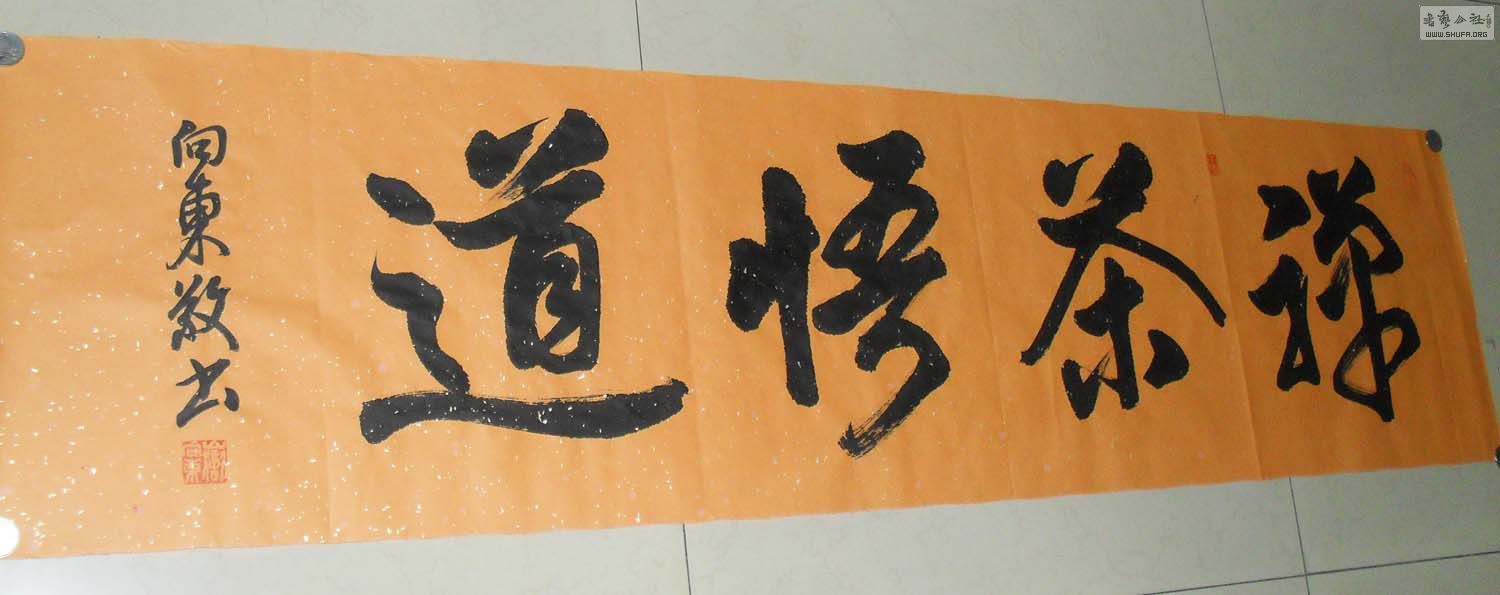 禪茶悟道
向東敬书
書藝公社
WWW.SHUFA.ORG